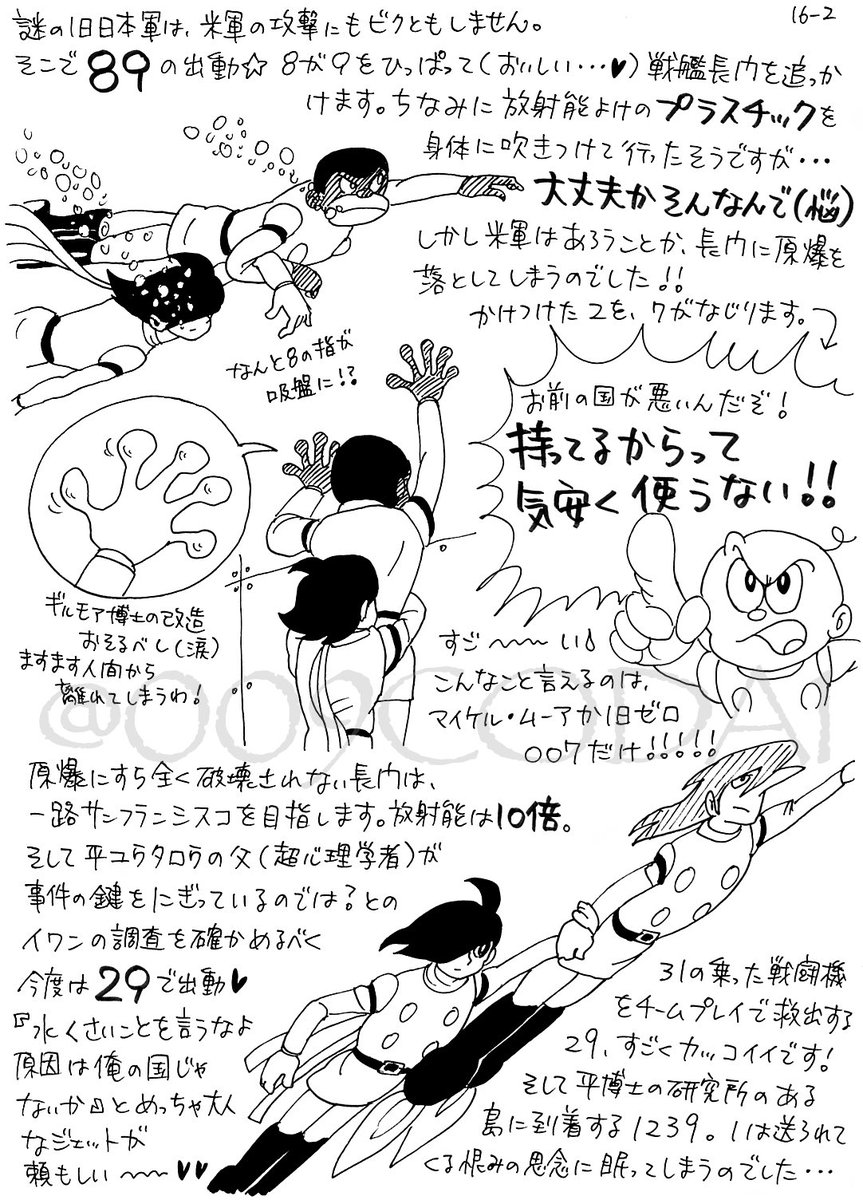 16-2
謎の旧日本軍は、米軍の攻撃にもビクともしません。
そこで89の出動☆ 8が9をひっぱって(おいしい…♥)戦艦長門を追っか
けます。ちなみに放射能よけのプラスチックを
身体に吹きつけて行ったそうですが…
大丈夫かそんなんで(悩)
しかし米軍はあろうことか、長門に原爆を
落としてしまうのでした!!
かけつけた2を、7がなじります。
なんと8の指が
吸盤に!?
お前の国が悪いんだぞ!
持ってるからって
気安く使うない!!
ギルモア博士の改造
おそるべし(涙)
ますます人間から
離れてしまうわ!
すご〜〜い♪
こんなこと言えるのは、
マイケル・ムーアか旧ゼロ
007だけ!!!!!
@009CODA1
原爆にすら全く破壊されない長門は、
一路サンフランシスコを目指します。放射能は10倍。
そして平ユウタロウの父(超心理学者)が
事件の鍵をにぎっているのでは?との
イワンの調査を確かめるべく
今度は29で出動♥
『水くさいことを言うなよ
原因は俺の国じゃ
ないか』とめっちゃ大人
なジェットが
頼もしい〜〜♥♥
31の乗った戦闘機
をチームプレイで救出する
29、すごくカッコイイです!
そして平博士の研究所のある
島に到着する1239。1は送られて
くる恨みの思念に眠ってしまうのでした…